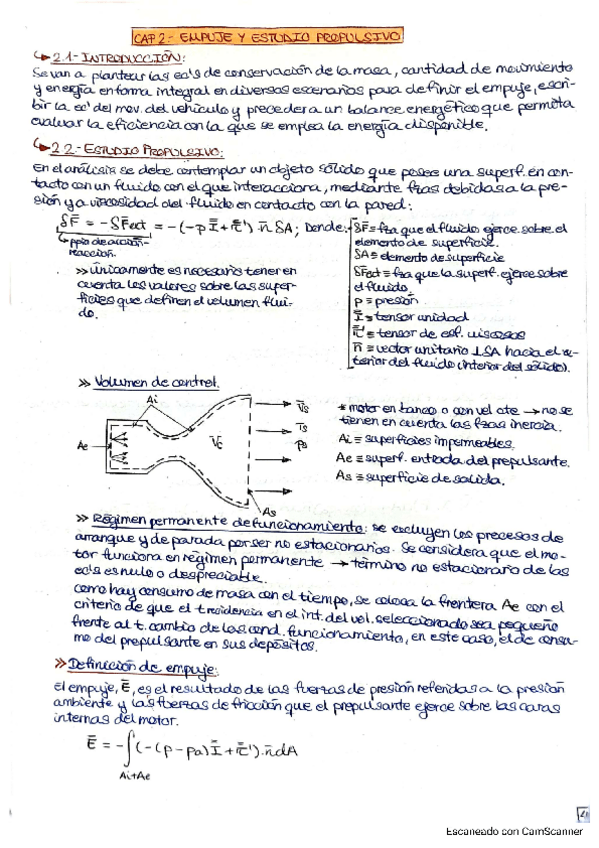 CAP 2.- EMPUJE Y ESTUDIO PROPULSIVO
2.1- INTRODUCCIÓN:
Se van a plantear las ec's de conservación de la masa, cantidad de movimiento
y energía en forma integral en diversos escenarios para definir el empuje, escri-
bir la ec' del mov. del vehículo y proceder a un balance energético que permita
evaluar la eficiencia con la que se emplea la energía disponible.
2.2- ESTUDIO PROPULSIVO:
En el análisis se debe contemplar un objeto sólido que posee una superf. en con-
tacto con un fluido con el que interacciona, mediante fzas debidas a la pre-
sión y a viscosidad del fluido en contacto con la pared:
δF̄ = -δF̄ext = -(-pĪ+τ̄') n̄ δA; Donde:
δF̄ ≡ fza que el fluido ejerce sobre el
elemento de superficie.
δA ≡ elemento de superficie
δF̄ext ≡ fza que la superf. ejerce sobre
el fluido.
p ≡ presión
Ī ≡ tensor unidad
τ̄' ≡ tensor de esf. viscosos
n̄ ≡ vector unitario ⊥ δA hacia el ex-
terior del fluido (interior del sólido).
ppio de acción-
reacción.
» Únicamente es necesario tener en
cuenta los valores sobre las super-
ficies que definen el volumen flui-
do.
» Volumen de control.
Ai
Ae
V̄c
V̄s
Ts
ps
As
* motor en banco o con vel. cte → no se
tienen en cuenta las fzas inercia.
Ai ≡ superficies impermeables.
Ae ≡ superf. entrada del propulsante.
As ≡ superficie de salida.
» Régimen permanente de funcionamiento: se excluyen los procesos de
arranque y de parada por ser no estacionarios. Se considera que el mo-
tor funciona en régimen permanente → término no estacionario de las
ec's es nulo o despreciable.
Como hay consumo de masa con el tiempo, se coloca la frontera Ae con el
criterio de que el t. residencia en el int. del vol. seleccionado sea pequeño
frente al t. cambio de las cond. funcionamiento, en este caso, el de consu-
mo del propulsante en sus depósitos.
» Definición de empuje:
El empuje, Ē, es el resultado de las fuerzas de presión referidas a la presión
ambiente y las fuerzas de fricción que el propulsante ejerce sobre las caras
internas del motor.
Ē = -∫(-(p-pa)Ī+τ̄')·n̄dA
Ai+Ae
Escaneado con CamScanner